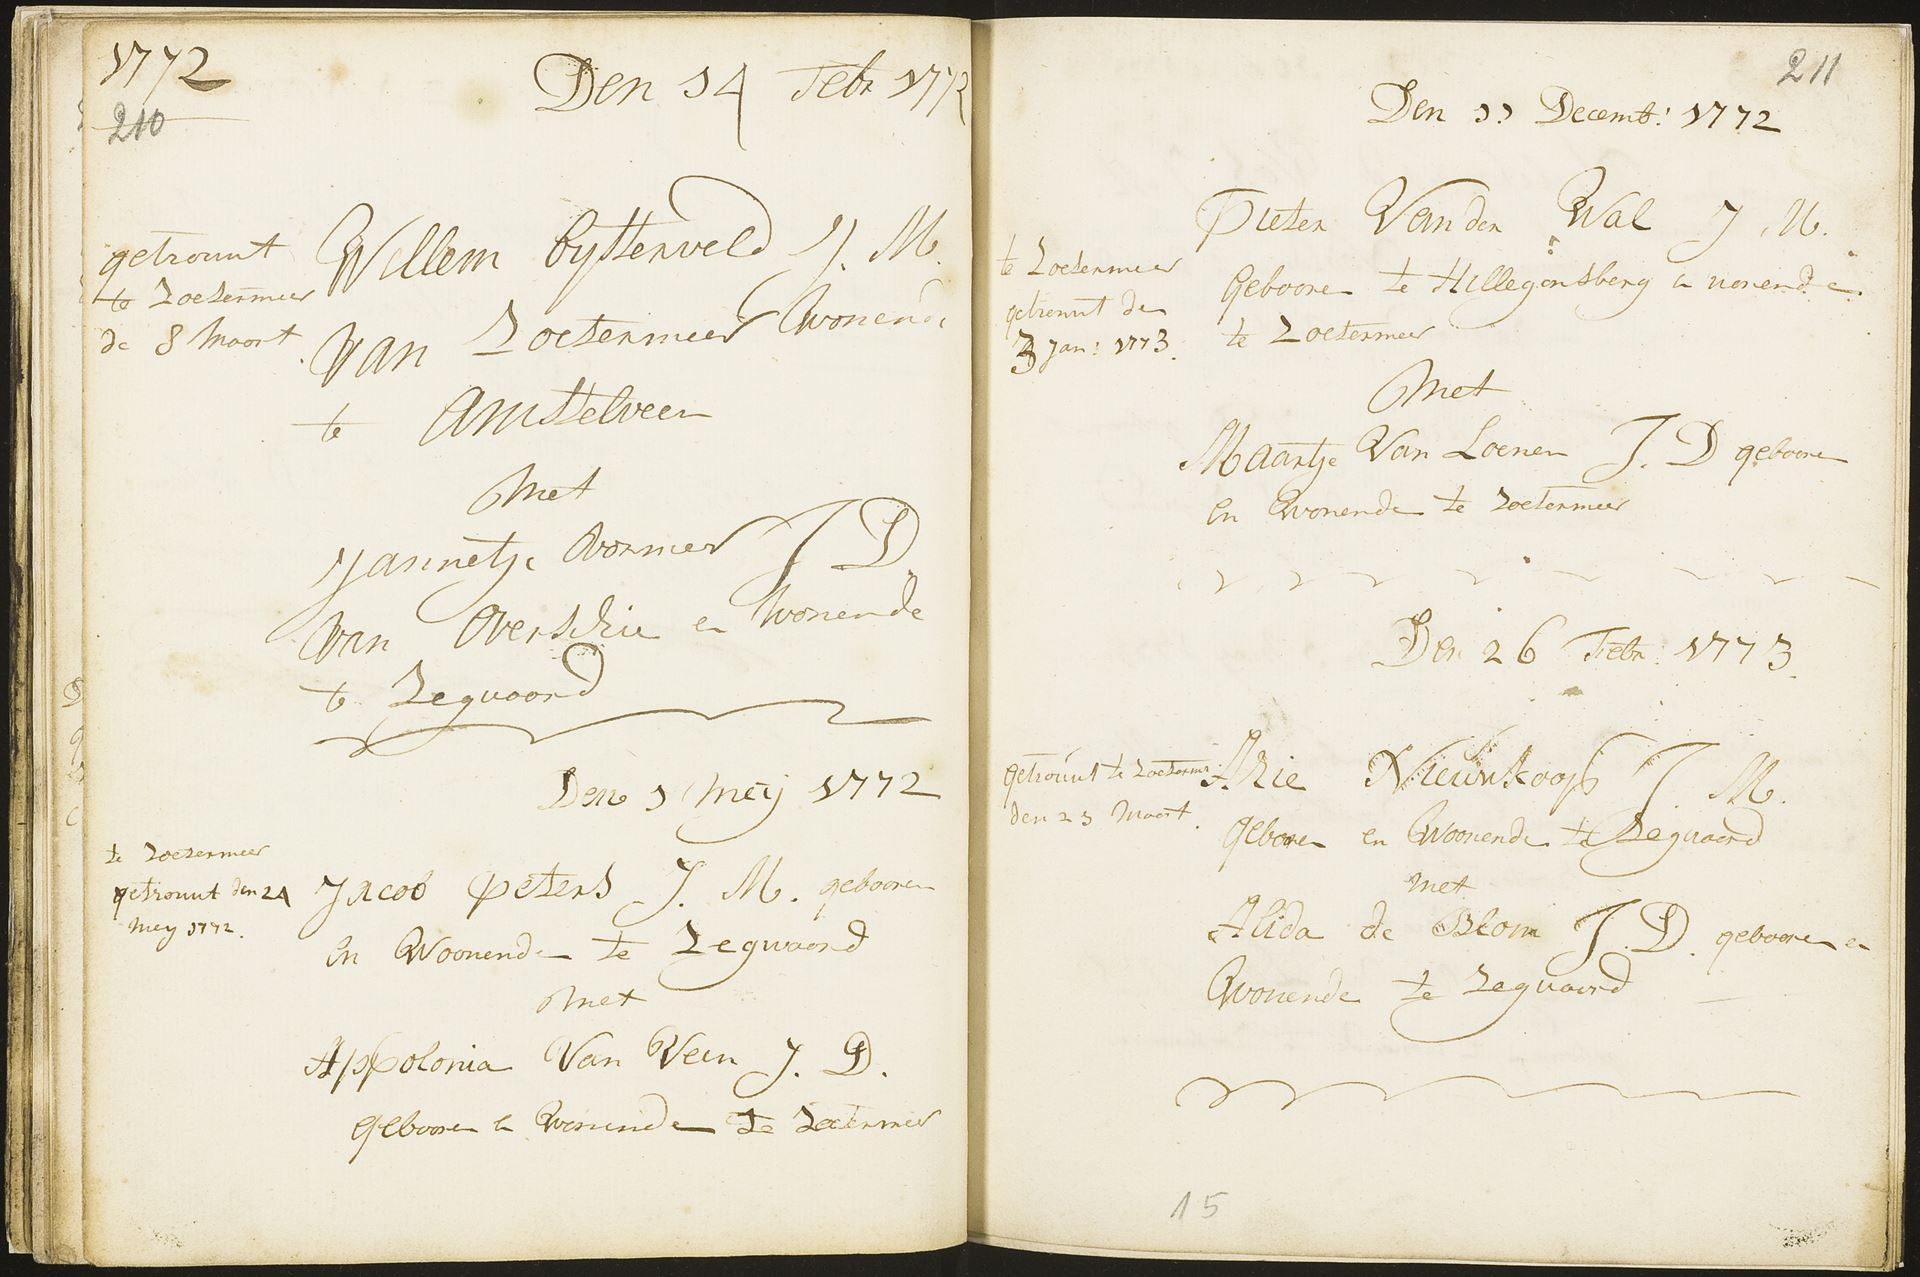 1772
210
Den 14 Febr 1772
getrouwt
te Zoetermeer
de 8 Maart
Willem bijsterveld J. M.
van Zoetermeer Wonende
te Amstelveen
Met
Jannetje Wormer J D
van Overschie en Wonende
te Zegwaard
Den 1 Meij 1772
te Zoetermeer
getrouwt den 24
Meij 1772.
Jacob Peters J. M. gebooren
en Woonende te Zegwaard
Met
Appolonia Van Veen J. D.
gebooren en Wonende te Zoetermeer
211
Den 11 Decemb: 1772
te Zoetermeer
getrouwt de
3 Jan: 1773.
Pieter Van der Wal J M.
Gebooren te Hillegonsberg en wonende
te Zoetermeer
Met
Maartje Van Loenen J. D gebooren
en Wonende te Zoetermeer
Den 26 Febr: 1773.
getrouwt te Zoeterm:
den 23 Maart.
Arie Nieuwkoop J. M.
gebooren en Woonende te Zegwaard
Met
Alida de Blom J. D. gebooren en
Wonende te Zegwaard
15